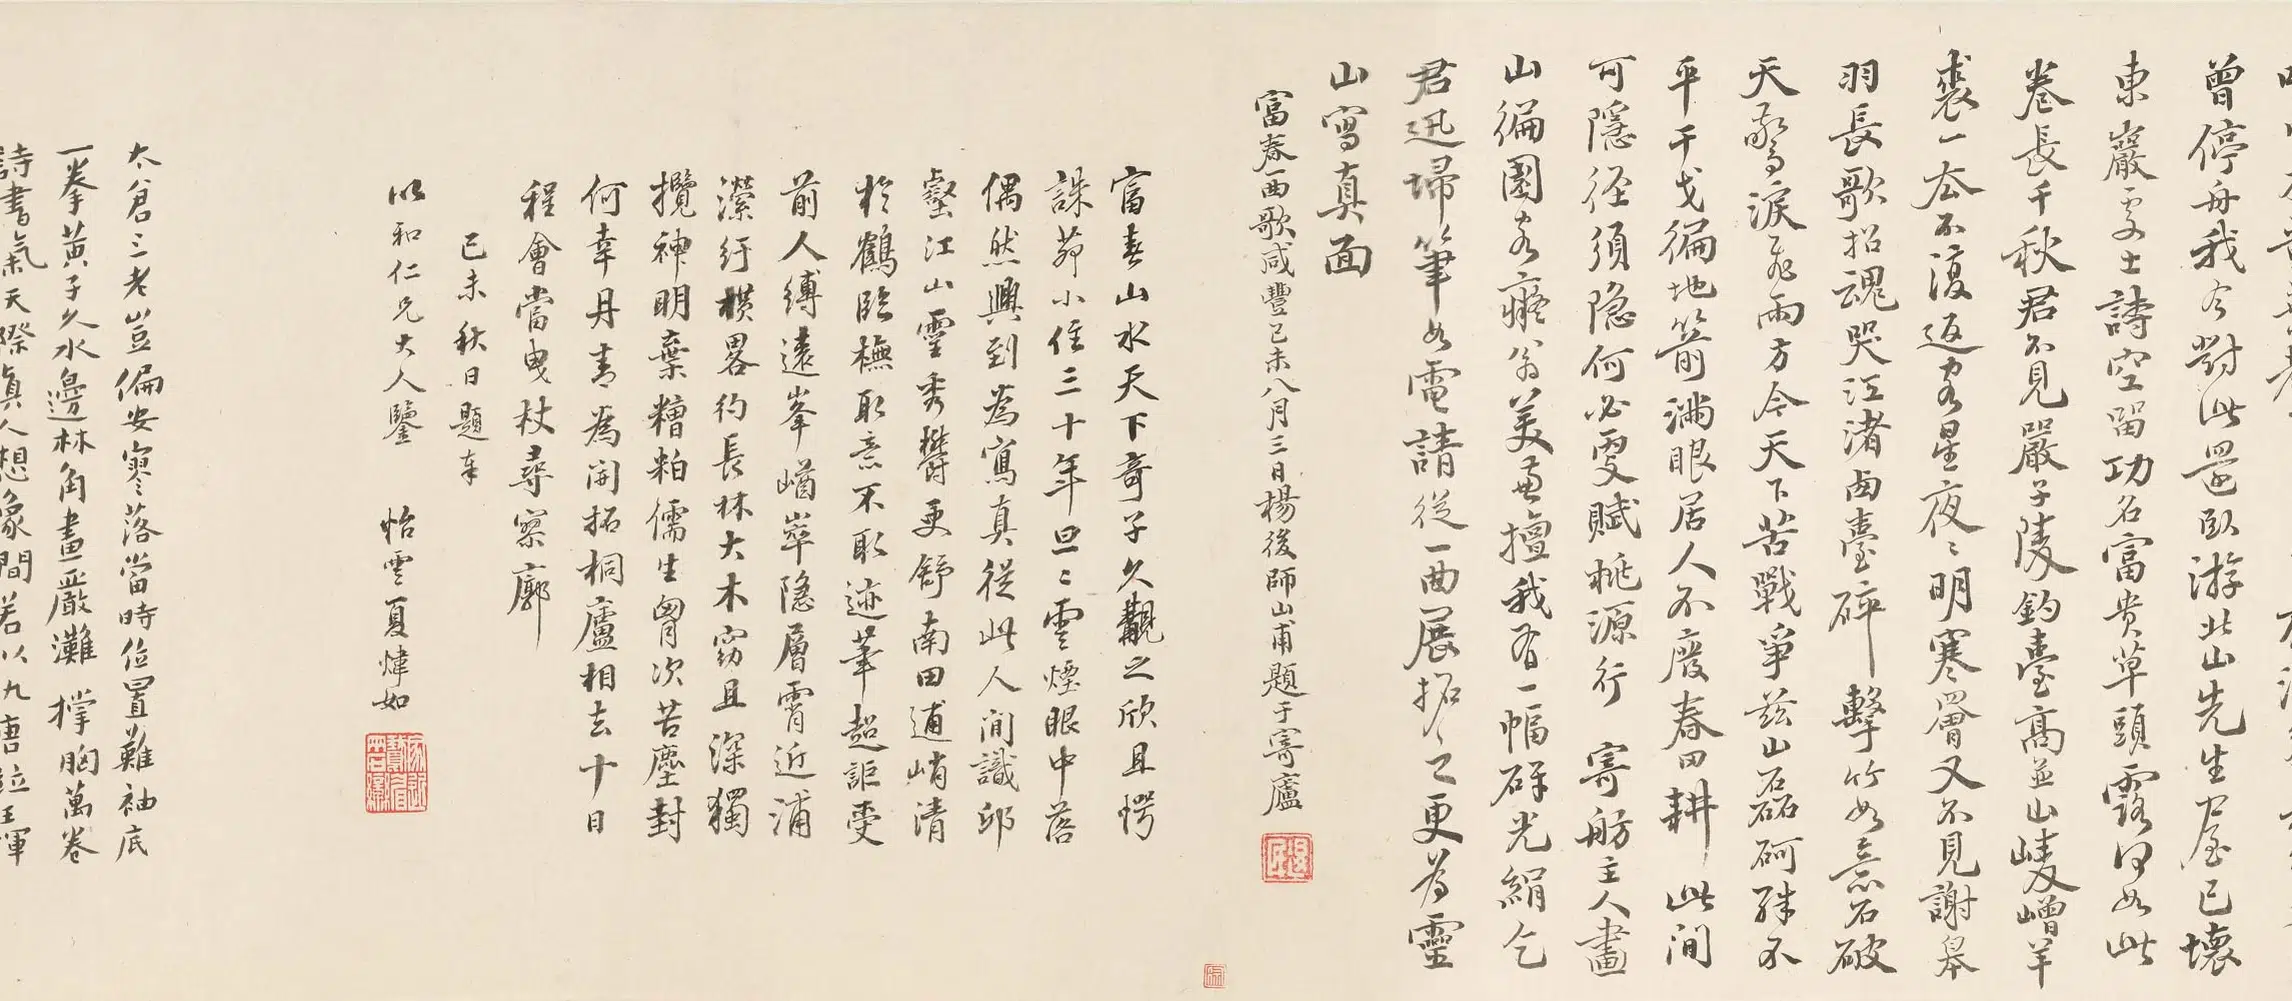 曾停舟我今對此還臥游北山先生屋已壞
東巖處士詩空留功名富貴草頭露何如此
卷長千秋君不見嚴子陵釣臺高並山崚嶒羊
裘一去不復返客星夜〻明寒罾又不見謝皋
羽長歌招魂哭江渚西臺碎擊竹如意石破
天驚淚飛雨方今天下苦戰爭茲山磊砢殊不
平干戈徧地箭滿眼居人不廢春田耕此間
可隱徑須隱何必更賦桃源行寄舫主人畫
山徧園客癡翁美兼擅我有一幅研光絹乞
君迅埽筆如電請從一曲展拓之更為靈
山寫真面
富春西歌咸豐己未八月三日楊後師山甫題于寄廬
富春山水天下奇子久覯之欣且愕
誅茆小住三十年旦〻雲煙眼中落
偶然興到為寫真從此人間識邱
壑江山靈秀鬱更舒南田逋峭清
於鶴臨橅取意不取迹筆超詎受
前人縛遠峯崷崒隱層霄近浦
瀠紆横畧彴長林大木窈且深獨
攬神明棄糟粕儒生胷次苦塵封
何幸丹青為開拓桐廬相去十日
程會當曳杖尋寥廓
己未秋日題奉
似和仁兄大人鑒 怡雲夏煒如
太倉三老豈偏安寥落當時位置難袖底
一拳黃子久水邊林角畫嚴灘 撐胸萬卷
詩書氣天際真人想像間若以九唐